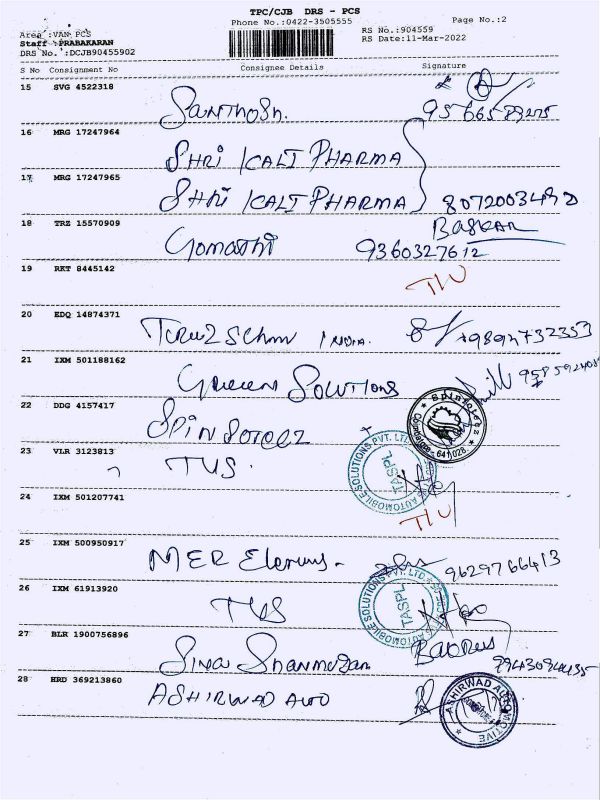 TPC/CJB DRS - PCS
Phone No.:0422-3505555 Page No.:2
Area :VAN PCS RS No.:904559
Staff :PRABAKARAN RS Date:11-Mar-2022
DRS No.:DCJB90455902
S No Consignment No Consignee Details Signature
15 SVG 4522318
Santhosh.
16 MRG 17247964
SHRI KALI PHARMA
17 MRG 17247965
SHRI KALI PHARMA
18 TRZ 15570909 BASKAR
Gomathi 9360327612
19 RKT 8445142
20 EDQ 14874371
INDIA. 9894732353
21 IXM 501188162
Green Solutions
22 DDG 4157417
Spinfotecz
Coimbatore - 641 028
23 VLR 3123813
TVS.
AUTOMOBILE SOLUTIONS PVT. LTD.
TASPL
24 IXM 501207741
25 IXM 500950917
MER 9629766413
26 IXM 61913920
TVS
AUTOMOBILE SOLUTIONS PVT. LTD.
TASPL
27 BLR 1900756896
Siva Shanmugam
28 HRD 369213860
ASHIRWAD AUTO
ASHIRWAD AUTOMOTIVE